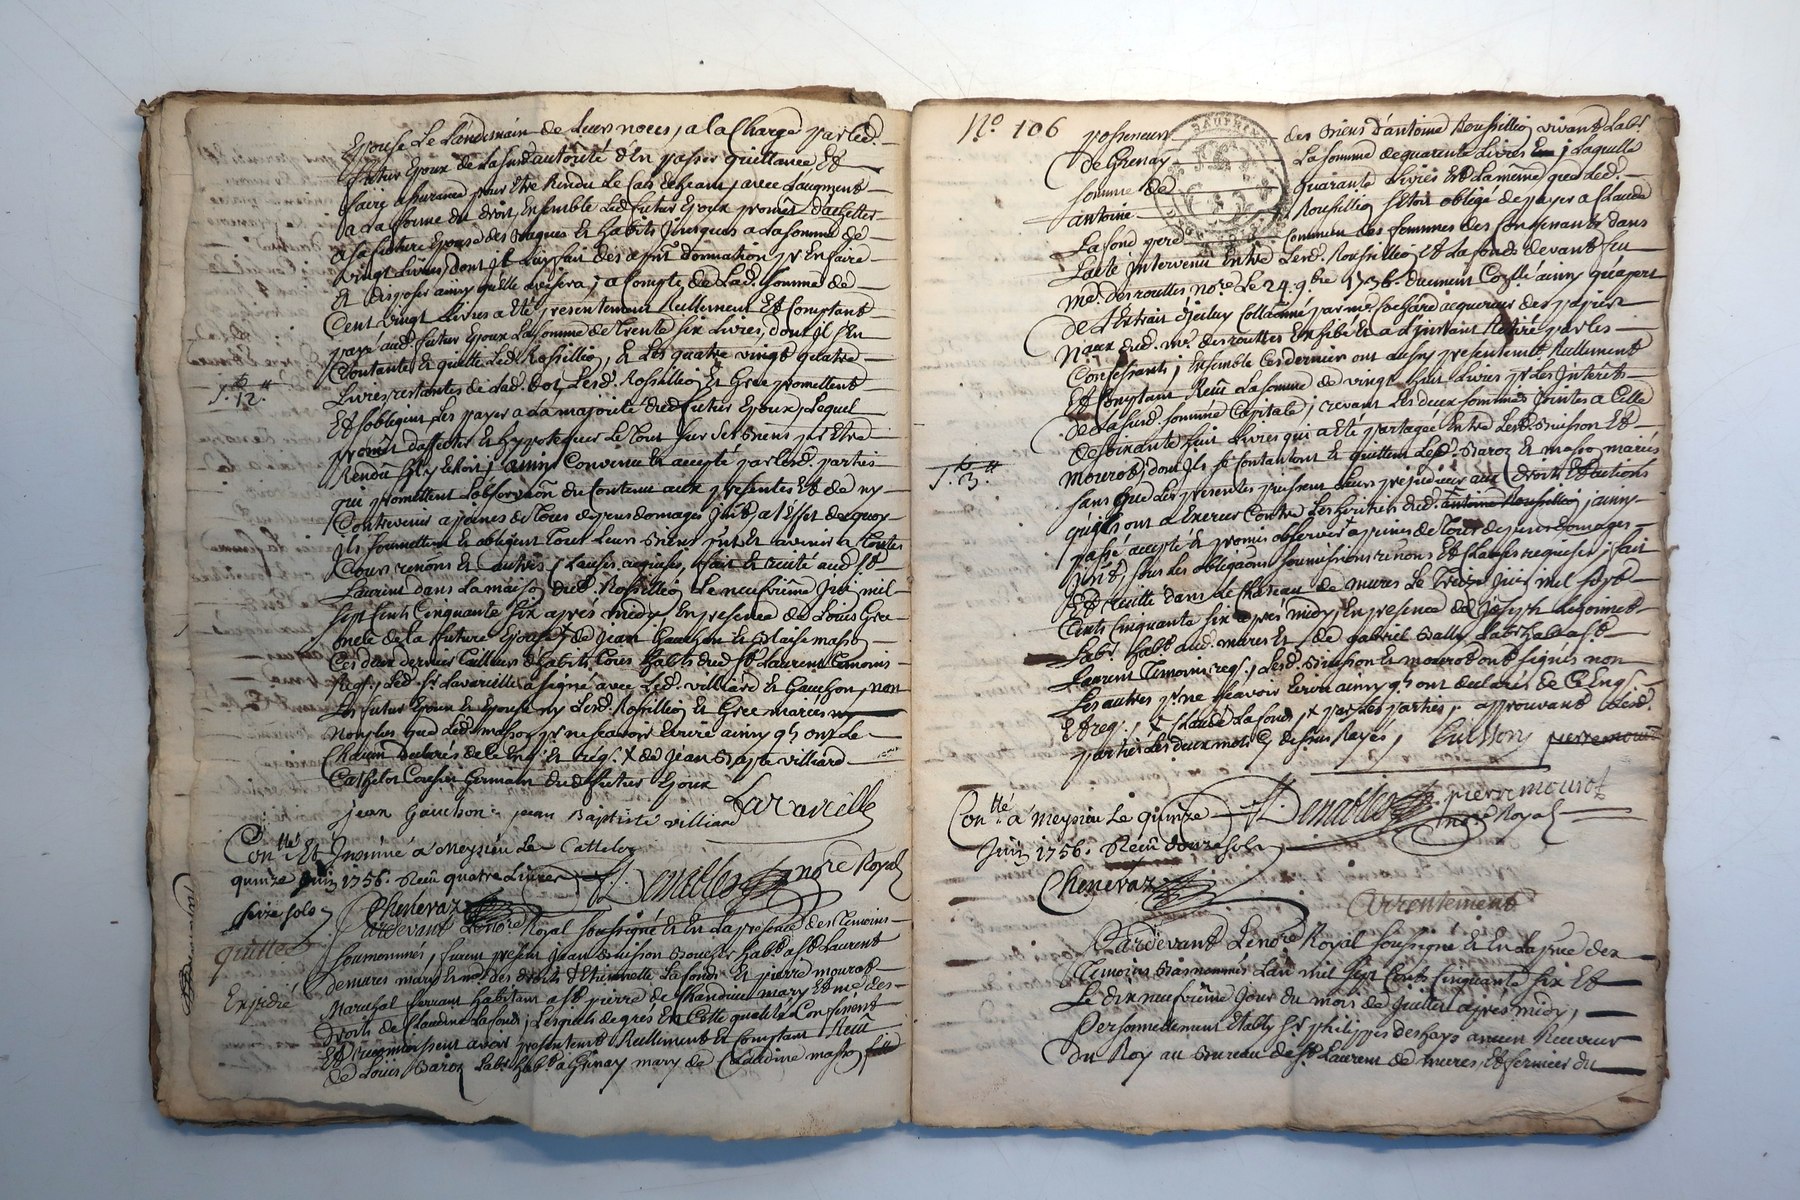 Epouse Le Landemain de Leurs noces, a la Charge par led.
futur Epoux de La susd. autorité d'en passer quittance Et
faire assurance pour Etre Rendu Le Cas Echeant, avec L'augment
a La forme du droit, Ensemble Led. futur Epoux promet d'achetter
a La future Epouse des Bagues Et habits Jusques a La somme de
vingt Livres, dont Il Luy fait des a pnt donnation pr En faire
Et disposer ainsy qu'elle avisera, a Compte de Lad. somme de
Cent vingt Livres a Eté presentement Reellement Et Comptant
payé aud. futur Epoux La somme de Trente Six Livres, dont il s'En
Contante Et quitte Led. Rossillion, Et Les quatre vingt quatre
Livres restantes de Lad. dot, Lesd. Rossillion Et Grée promettent
Et s'obligent Les payer a La majorité dud. futur Epoux, Lequel
promet d'affecter Et hypotequer Le Tout sur Ses Biens pr Etre
Rendu sy y Echoit, ainsy Convenu Et accepté par Lesd. parties
qui promettent L'observaon du Contenu aux presentes Et de n'y
Contrevenir a peines de Tous depens domages Intts, a L'Effet de quoy
Ils soumettent Et obligent Tous Leurs Biens pnts Et avenir a Toutes
Cours renons Et autres Clauses requises, fait Et recité aud. St.
Laurent dans La maison dud. Rossillion Le neufvième Juin mil
sept Cents Cinquante Six après midy En presence de Louis Grée
oncle de La future Epouse X de Jean Gauchon Et Blaise masson
Ces deux derniers Tailleurs d'habits, Tous habts dud. St. Laurent Temoins
req., Led. Sr. Lavareille a signé avec Led. villiard Et Gauchon, non
Les futur Epoux Et Epouse ny Lesd. Rossillion Et Grée maries
non plus que Led. masson pr ne scavoir Ecrire ainsy qs ont Le
Chacun Declarés de Ce Enq. Et req. X de Jean Bapte villiard
Cathelor Cousin Germain dud. futur Epoux
12.
jean Gauchon jean Baptiste villiard Lavareille
Conllé Et Insinué a Meysieu Le Cattelor
quinze Juin 1756. Recu quatre Livres Denalles nore Royal
seize sols Chenevaz
quittce
Expedié
Pardevant Le nore Royal soussigné Et En La presence des Temoins
sousnommés, furent presents Jean Buisson Boucher habt a St. Laurent
de mures mary Et me des droits d'Etiennette Lafond Et pierre mourot
Marechal ferrant habitant a St. pierre de Chandieu mary Et me des
droits de Claudine Lafond, Lesquels de gres En Cette qualité Confessent
Et reconnoissent avoir presentement Reellement Et Comptant Receu
de Louis Baroz Labr habt a Grenay mary de Claudine masson
No. 106
possesseurs des Biens d'antoine Roussillion vivant Labr.
de Grenay La somme de quarante Livres, Laquelle
somme de quarante Livres Est La meme que Led.
antoine Roussillion s'etoit obligé de payer a Claude
Lafond pere Commun des femmes des Confessants dans
L'acte Intervenu Entre Lesd. Roussillion Et Lafond devant feu
me. Desrouttes nore. Le 24. 9bre 1736. duement Conllé ainsy qu'apert
de L'Extrait d'iceluy Collationné par me. Cochard acquereur des papiers
dud. me. desrouttes Exhibé Et a L'instant Retiré par les
Confessants, Ensemble Ces derniers ont aussy presentement Reellement
Et Comptant Receu La somme de vingt huit Livres pr Les Interets
de La susd. somme Capitale, crevant Les deux sommes Jointes a Celle
de soixante huit Livres qui a Eté partagée Entre Lesd. Buisson Et
mourot, dont Ils se Contantent Et quittent Led. Baroz Et masson mariés
3.
sans que Les presentes puissent Leurs prejudicier aux droits Et actions
qu'ils ont a Exercer Contre Les heritiers dud. antoine Roussillion, ainsy
passé accepté Et promis observer a peines de Tous depens domages
Intts, sous Les obligaons soumissions renons Et Clauses requises, fait
Et recitté dans Le Chateau de mures Le Treize Juin mil sept
Cents Cinquante Six après midy, En presence de Joseph
Labr. habt aud. mures Et de Gabriel Bally Labr habt a St
Laurent Temoins req., Lesd. Buisson Et mourot ont signés non
Les autres pr ne scavoir Ecrire ainsy qs ont declarés de Ce Enq.
Et req., X Claude Lafond, X par Les parties, approuvant Lesd.
parties Les deux mots Cy dessus Rayés, Buisson pierre mourot
pierre mourot
Conllé a Meysieu Le quinze Denalles nore Royal
Juin 1756. Recu douze sols
Chenevaz
Arrentement
Pardevant Le nore Royal soussigné Et En La pnce des
Temoins Bas nommés L'an mil sept Cents Cinquante Six Et
Le dix neufvième Jour du mois de Juillet après midy,
Personnellement Etably Sr. philippe deshays ancien Receveur
Du Roy au Bureau de St. Laurent de mures, Et fermier du